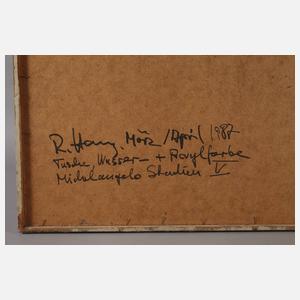 R. Hang, März/April 1987
Tusche, Wasser- + Acrylfarbe
Michelangelo Studien V